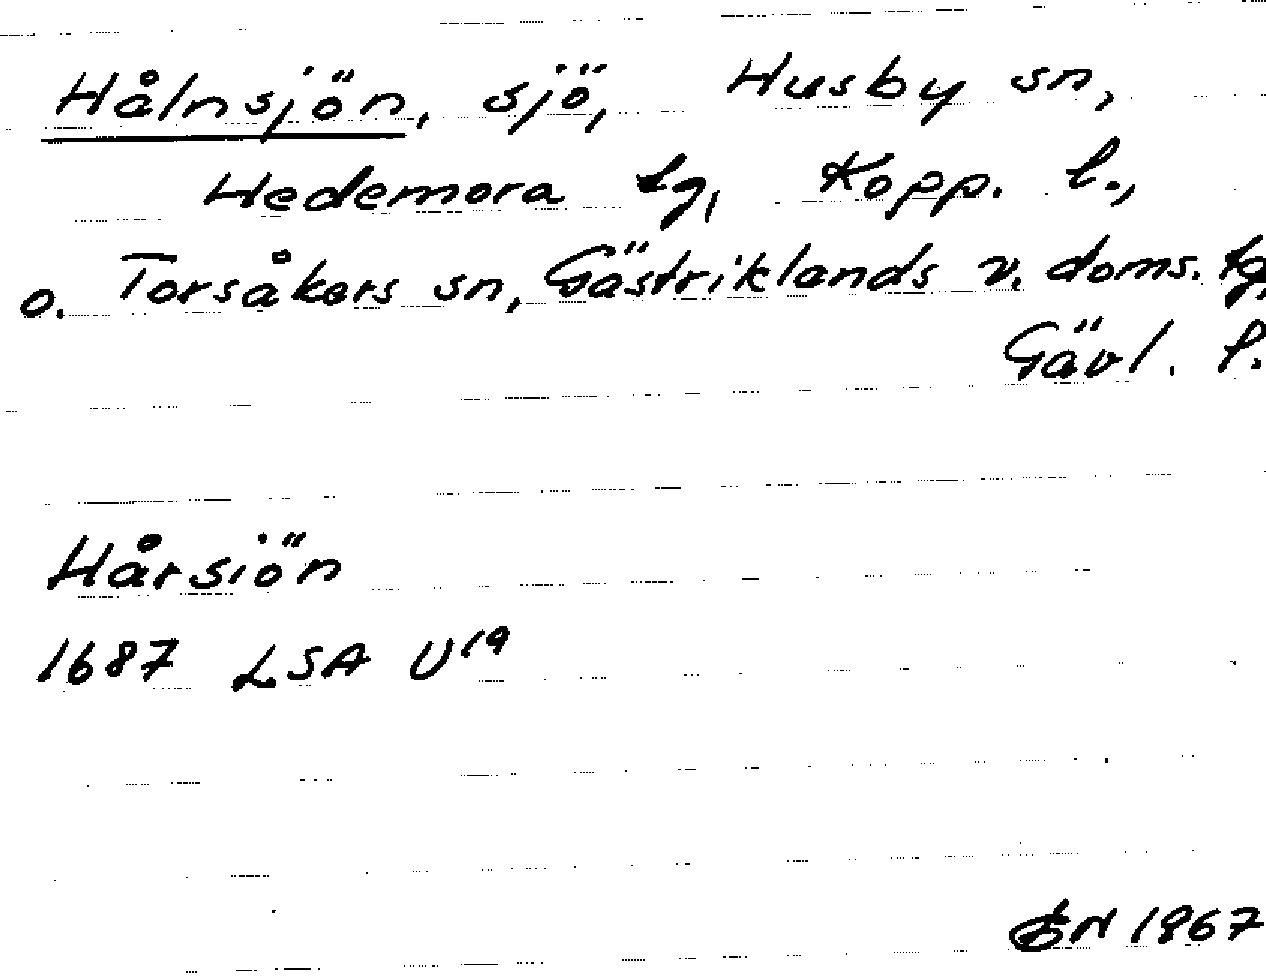 Hålnsjön, sjö, Husby sn,
Hedemora tg, Kopp. l.,
o. Torsåkers sn, Gästriklands v. doms. tg,
Gävl. l.
Hårsiön
1687 LSA U19
EN 1967